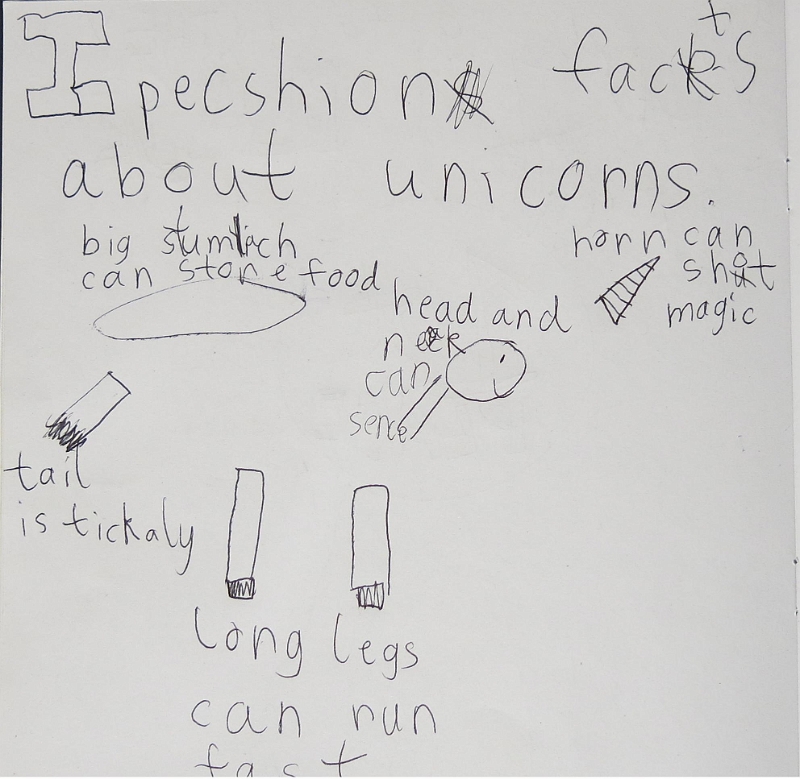 Ipecshion facts
about unicorns.
big stumach
can store food
horn can
shot
magic
head and
neck
can
sence
tail
is tickaly
long legs
can run
fast